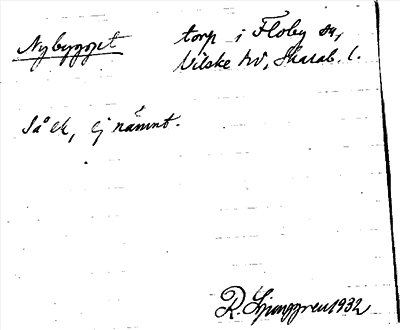 Nybygget
torp i Floby sn,
Vilske hd, Skarab. l.
Så ek, ej nämnt.
R. Ljunggren 1932